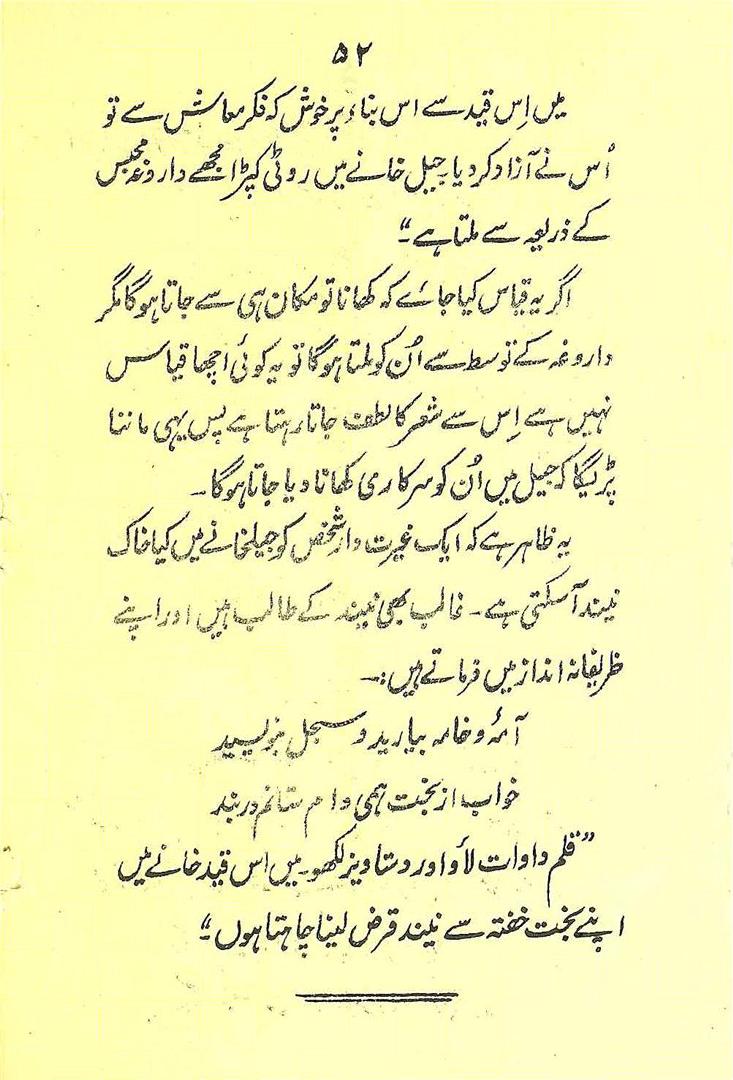 ۵۲
میں اِس قید سے اس بناء پر خوش کہ فکر معاش سے تو
اُس نے آزاد کر دیا۔ جیل خانے میں روٹی کپڑا مجھے داروغۂ محبس
کے ذریعہ سے ملتا ہے۔“
اگر یہ قیاس کیا جائے کہ کھانا تو مکان ہی سے جاتا ہوگا مگر
داروغہ کے توسط سے اُن کو ملتا ہوگا تو یہ کوئی اچھا قیاس
نہیں ہے اِس سے شعر کا لطف جاتا رہتا ہے پس یہی ماننا
پڑیگا کہ جیل میں اُن کو سرکاری کھانا دیا جاتا ہوگا۔
یہ ظاہر ہے کہ ایک غیرت دار شخص کو جیلخانے میں کیا خاک
نیند آسکتی ہے۔ غالب بھی نیند کے طالب ہیں اور اپنے
ظریفانہ انداز میں فرماتے ہیں:۔
آمہ و خامہ بیارید و سجل بنویسید
خواب از بخت ہمی وام ستانم در بند
”قلم داوات لاؤ اور دستاویز لکھو۔ میں اس قید خانے میں
اپنے بخت خفتہ سے نیند قرض لینا چاہتا ہوں۔“